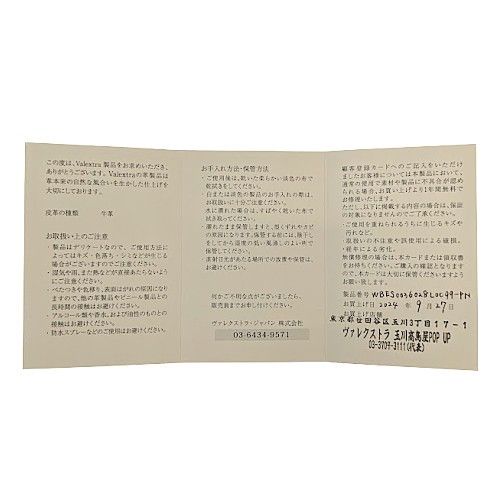 この度は、Valextra 製品をお求めいただき、
ありがとうございます。Valextraの革製品は
革本来の自然な風合いを生かした仕上げを
大切にしております。
皮革の種類　牛革
お取扱い上のご注意
・製品はデリケートなので、ご使用方法に
よってはキズ・色落ち・シミなどが生じる
場合がございますのでご注意ください。
・湿気や雨、また熱などが直接あたらない
ようにご注意ください。
・べたつきや色移り、表面はがれの原因になり
ますので、他の革製品やビニール製品との
長時間の接触はお避けください。
・アルコール類や香水、および油性のものとの
接触はお避けください。
・防水スプレーなどのご使用はお避けください。
お手入れ方法・保管方法
・ご使用後は、乾いた柔らかい淡色の布で
乾拭きをしてください。
・白または淡色の製品のお手入れの際は、
お取扱いに十分ご注意ください。
・水に濡れた場合は、すばやく乾いた布で
拭いてください。
・濡れたまま保管しますと、型くずれやカビ
の原因になります。保管する前には、陰干し
をしてから湿度の低い風通しのよい所で
保管してください。
・直射日光があたる場所での放置や保管は、
お避けください。
何かご不明な点がございましたら、
販売員までお申し付けください。
ヴァレクストラ・ジャパン 株式会社
03-6434-9571
顧客登録カードへのご記入をいただけ
ましたお客様については本製品において、
通常の使用で素材や製品に不具合が認め
られる場合、お買い上げより1年間無料で
お修理いたします。
ただし、以下に掲載する内容の場合は、保証
の対象になりませんのでご了承ください。
・ご使用を重ねられるうちに生じるキズや
汚れなど。
・取扱いの不注意や誤使用による破損。
・経年による劣化。
無償修理の場合は、本カードまたは領収書
をお持ちください。ご購入の確認となります
ので、本カードは大切に保管していただきますよう
お願いします。
製品番号
お買上げ日 2024 年 9 月 27日
お買上げ店舗
東京都世田谷区玉川3丁目17-1
ヴァレクストラ 玉川高島屋POP UP
03-3709-3111(代表)